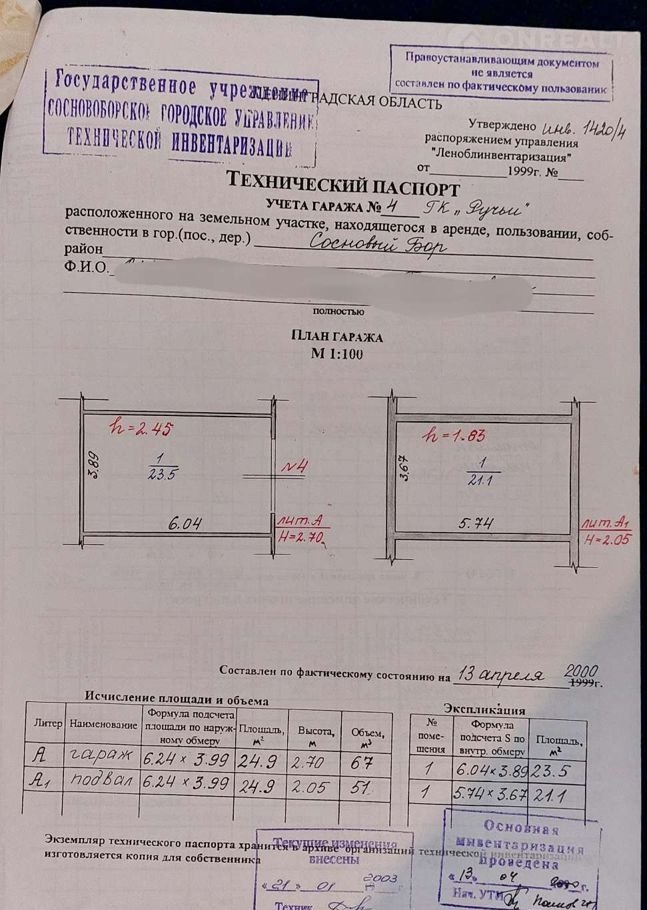 ONREALT
Правоустанавливающим документом
не является
составлен по фактическому пользованию
Государственное учреждение
СОСНОВОБОРСКОЕ ГОРОДСКОЕ УПРАВЛЕНИЕ
ТЕХНИЧЕСКОЙ ИНВЕНТАРИЗАЦИИ
ЛЕНИНГРАДСКАЯ ОБЛАСТЬ
Утверждено инв. 1420/4
распоряжением управления
"Леноблинвентаризация"
от 1999г. №
ТЕХНИЧЕСКИЙ ПАСПОРТ
УЧЕТА ГАРАЖА № 4 ГК „Ручьи"
расположенного на земельном участке, находящегося в аренде, пользовании, соб-
ственности в гор.(пос., дер.) Сосновый Бор
район
Ф.И.О.
полностью
ПЛАН ГАРАЖА
М 1:100
h=2.45
3.89
1
23.5
N4
6.04
лит.А
H=2.70
h=1.83
3.67
1
21.1
5.74
лит.А1
H=2.05
Составлен по фактическому состоянию на 13 апреля 2000
1999г.
Исчисление площади и объема
Литер Наименование Формула подсчета площади по наруж- ному обмеру Площадь, м² Высота, м Объем, м³
А гараж 6.24 × 3.99 24.9 2.70 67
А1 подвал 6.24 × 3.99 24.9 2.05 51
Экспликация
№ поме- щения Формула подсчета S по внутр. обмеру Площадь, м²
1 6.04×3.89 23.5
1 5.74×3.67 21.1
Экземпляр технического паспорта хранится в архиве организаций технической инвентаризации
изготовляется копия для собственника
Текущие изменения
внесены
«21» 01 2003
Техник
Основная
инвентаризация
проведена
«13» 04 2000г.
Нач. УТИ